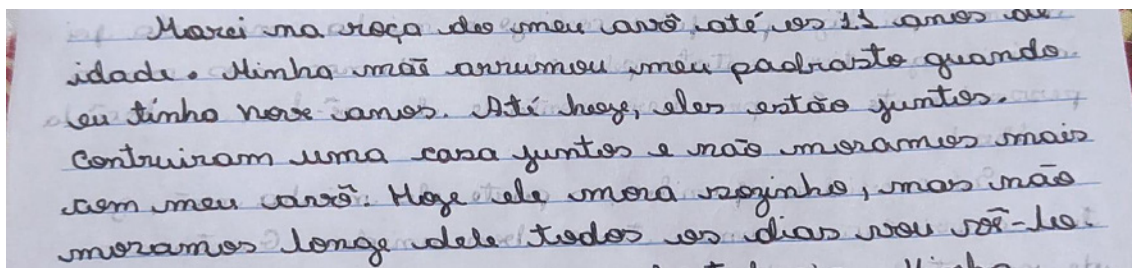 Morei na roça do meu avô, até, os 11 anos de
idade. Minha mãe arrumou, meu padrasto quando
eu tinha nove anos. Até hoze, eles estão juntos.
Contruiram uma casa juntos e não moramos mais
com meu avô. Hoze ele mora sozinho, mas não
moramos longe dele todos os dias vou vê-lo.